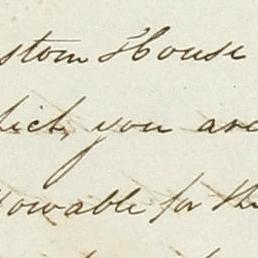 stom House
hich, you are
lowable for the